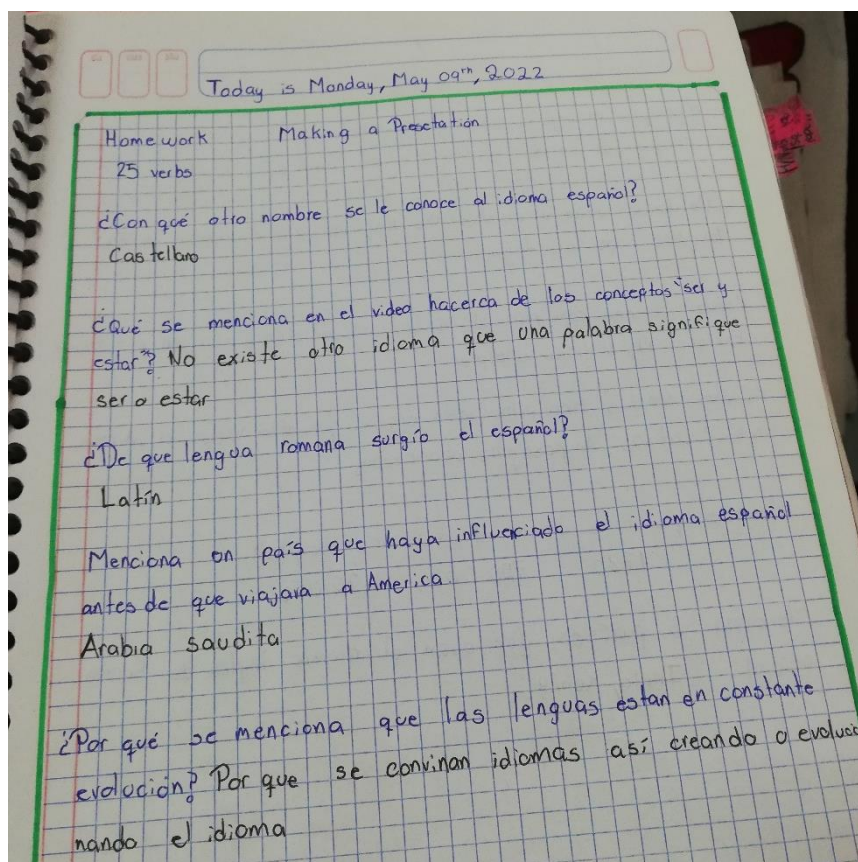 Today is Monday, May 09th, 2022
Homework Making a Presctation
25 verbs
¿Con qué otro nombre se le conoce al idioma español?
Castellano
¿Qué se menciona en el video hacerca de los conceptos "ser y
estar"? No existe otro idioma que una palabra signifique
ser o estar
¿De que lengua romana surgío el español?
Latín
Menciona un país que haya influenciado el idioma español
antes de que viajara a America.
Arabia saudita
¿Por qué se menciona que las lenguas estan en constante
evolución? Por que se convinan idiomas así creando o evolucio
nando el idioma